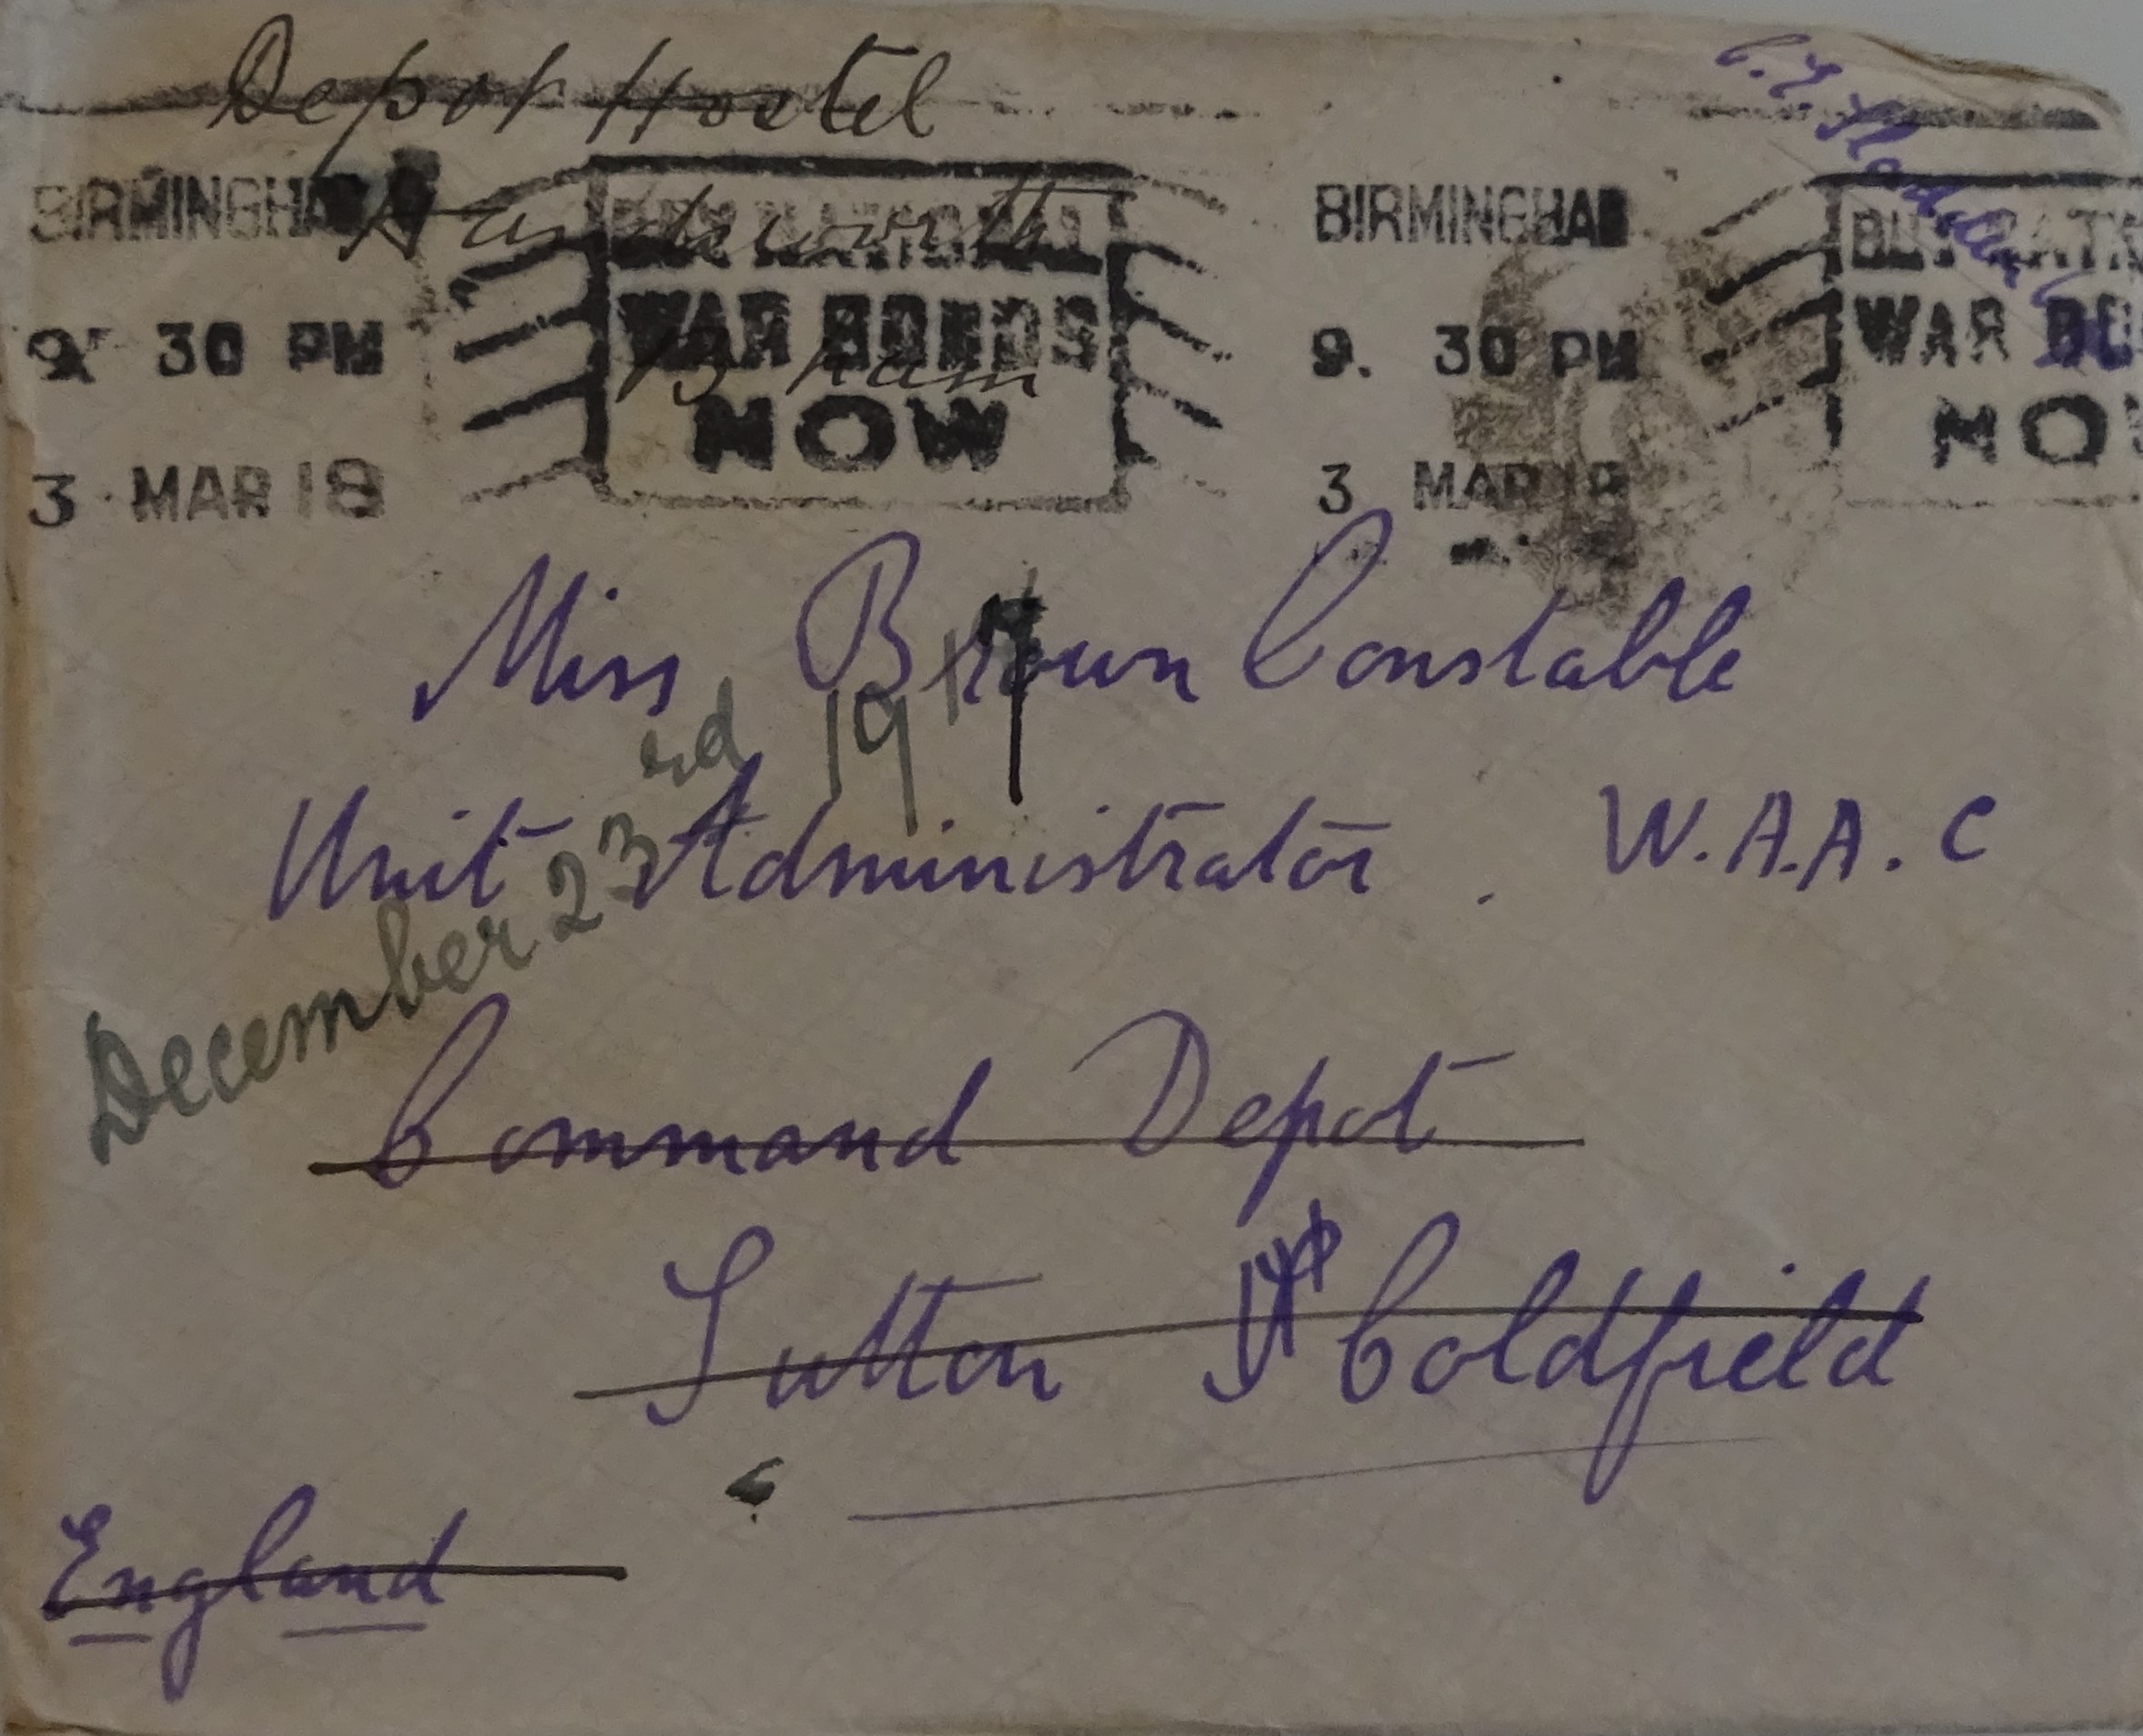 Depot Hostel
Handsworth
B'ham
BIRMINGHAM
9. 30 PM
3 MAR 18
BUY NATIONAL
WAR BONDS
NOW
BIRMINGHAM
9. 30 PM
3 MAR 18
BUY NAT
WAR BO
NO
Miss Brown Constable
Unit Administrator . W.A.A.C
December 23rd 1917
Command Depot
Sutton Coldfield
England